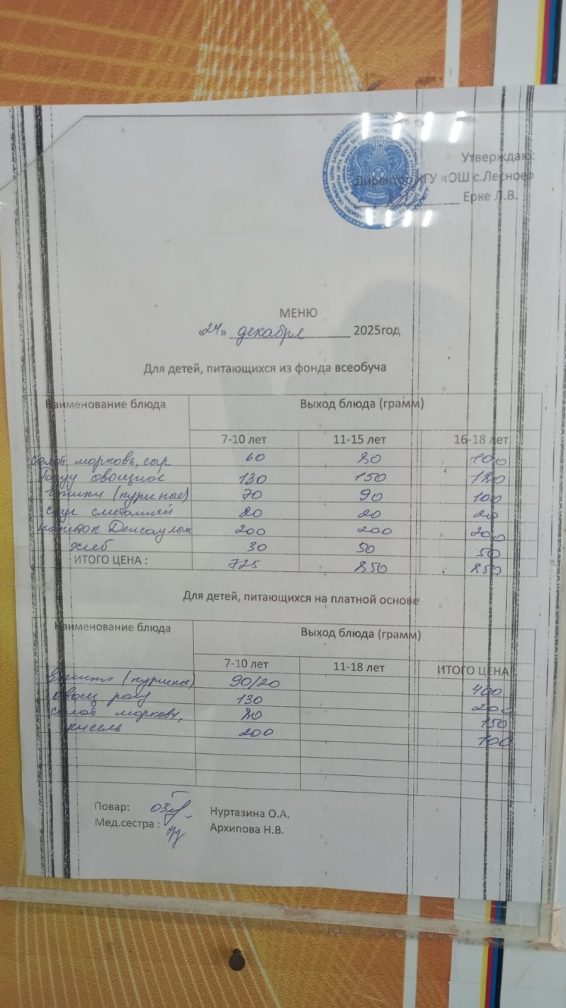 Утверждаю:
Директор КГУ «ОШ с.Лесное»
Ерке Л.В.
МЕНЮ
«24» декабря 2025год
Для детей, питающихся из фонда всеобуча
Наименование блюда Выход блюда (грамм)
7-10 лет 11-15 лет 16-18 лет
салат морковь, сыр 60 80 100
Рагу овощное 130 150 180
(куриные) 70 90 100
соус сметанный 20 20 20
напиток Денсаулык 200 200 200
хлеб 30 50 50
ИТОГО ЦЕНА : 775 850 850
Для детей, питающихся на платной основе
Наименование блюда Выход блюда (грамм)
7-10 лет 11-18 лет ИТОГО ЦЕНА
(куриные) 90/20 400
овощ рагу 130 200
салат морковь, 80 150
кисель 200 100
Повар: Нуртазина О.А.
Мед.сестра : Архипова Н.В.